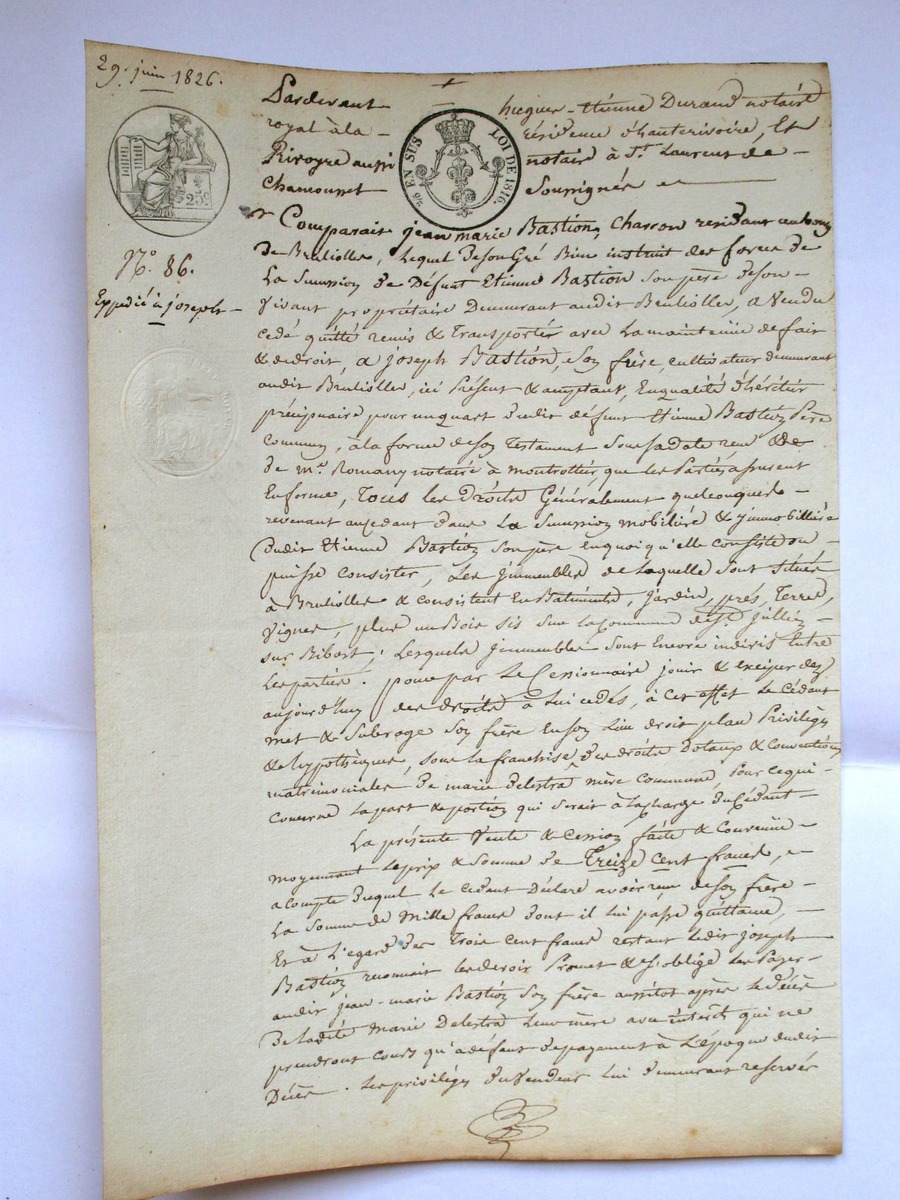 29. juin 1826.
Pardevant hugues-Etienne Durand notaire
royal à la - résidence d'hauterivoire, Et
Rivoyre aussi notaire à St. Laurent de -
Chamousset Soussignés
EN SUS
LOI DE 1816.
25c
No. 86.
Expédié à joseph
Comparait jean marie Bastion, Charron residant au bourg
de Bruliolles, Lequel de son Gré Bien instruit des forces de
La Succession de Défunt Etienne Bastion Son père de son
Vivant propriétaire Demeurant audit Brulioller, a Vendu
cedé quitté remis & Transporté avec La maintenüe de fait
& de droit, a joseph Bastion, Son frère, cultivateur demeurant
audit Brulioller, ici Présent & acceptant, En qualité d'héritier
précipuaire pour un quart dudit défunt Etienne Bastion Père
Commun, à la forme de Son Testament Sous Sa date reçu
de me. Romany notaire à montrottier, que les Parties assurent
En forme, Tous les Droits Généralement quelconques -
revenant au cedant dans La Succession mobiliére & jmmobilliére
dudit Etienne Bastion Son père en quoi qu'elle consiste ou
puisse consister, Les jmmeubles de Laquelle Sont Situés
à Brulioller & consistent En Batiments, jardin, prés, Terres,
Vignes, plus un Bois Sis Sur La Commune de St. jullien
sur Bibost; Lesquels jmmeubles Sont Encore indivis Entre
Les parties. pour par Le Cessionnaire jouir & exciper dez
aujourd'huy des droits à Lui cedés, à Cet effet Le Cédant
met & Subroge Son frère En Son Lieu droit place Privilèges
& hypothèques, Sous La franchise des droits Dotaux & Conventions
matrimoniales de marie delestra mère commune, Pour ce qui
Concerne La part & portion qui Serait à La charge du Cédant
La présente Vente & Cession faite & Convenüe -
moyennant Le prix & Somme de Treize Cent francs,
a compte duquel Le Cedant Déclare avoir reçu de Son frère -
La Somme de Mille francs dont il Lui passe quittance, -
Et à L'égard des Trois Cent francs restant Ledit joseph
Bastion reconnait les devoir Promet & S'oblige Les Payer -
audit jean-marie Bastion Son frère aussitot après Le Décès
de Ladite Marie Delestra Leur mère avec intérêt qui ne
prendront Cours qu'a défaut de payement à L'époque dudit
Décès. Les privilèges du Vendeur Lui demeurant reservés